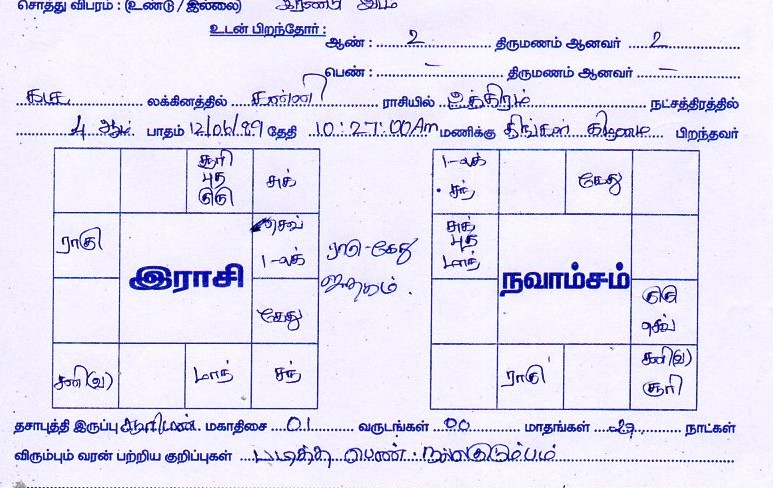 சொத்து விபரம் : (உண்டு / இல்லை)
உடன் பிறந்தோர் :
ஆண் : 2 திருமணம் ஆனவர் 2
பெண் : – திருமணம் ஆனவர் –
லக்கினத்தில் கன்னி ராசியில் உத்திரம் நட்சத்திரத்தில்
4 ஆம் பாதம் 12/06/89 தேதி 10:27:00 Am மணிக்கு திங்கள் கிழமை பிறந்தவர்
சூரி புத குரு
சுக்
ராகு
செவ்
லக்
இராசி
கேது
சனி(வ)
மாந்
சந்
ராகு-கேது
ஜாதகம்.
லக் சந்
கேது
சுக் புத மாந்
நவாம்சம்
குரு செவ்
ராகு
சனி(வ) சூரி
தசாபுத்தி இருப்பு சூரியன் மகாதிசை 01 வருடங்கள் 00 மாதங்கள் நாட்கள்
விரும்பும் வரன் பற்றிய குறிப்புகள் படித்த பெண். நல்லகுடும்பம்